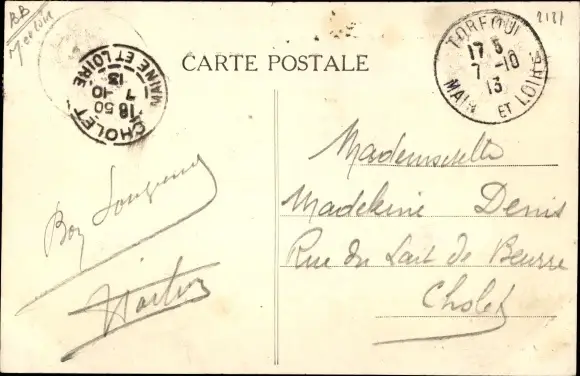 BB
2121
CHOLET
18 50
7-10
13
MAINE ET LOIRE
CARTE POSTALE
TORFOU
17 5
7-10
13
MAINE ET LOIRE
Mademoiselle
Madeleine Denis
Rue du Lait de Beurre
Cholet
Bon